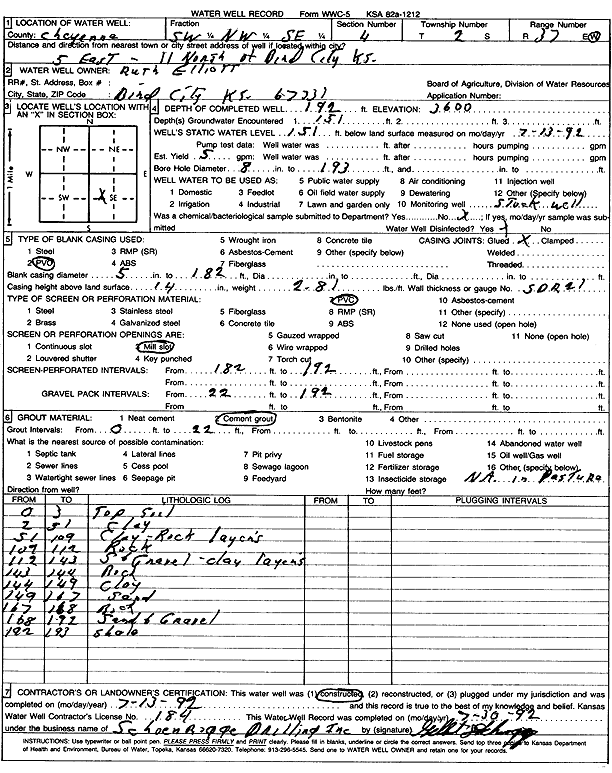 WATER WELL RECORD Form WWC-5 KSA 82a-1212
1 LOCATION OF WATER WELL: Fraction Section Number Township Number Range Number
County: Cheyenne SW ¼ NW ¼ SE ¼ 4 T 2 S R 37 E(W)
Distance and direction from nearest town or city street address of well if located within city?
5 East - 11 North of Bird City KS.
2 WATER WELL OWNER: Ruth Elliott
RR#, St. Address, Box # : Board of Agriculture, Division of Water Resources
City, State, ZIP Code : Bird City KS. 67731 Application Number:
3 LOCATE WELL'S LOCATION WITH AN "X" IN SECTION BOX:
N
NW NE
W E
SW X SE
S
1 Mile
4 DEPTH OF COMPLETED WELL 192 ft. ELEVATION: 3600
Depth(s) Groundwater Encountered 1. 151 ft. 2. ft. 3. ft.
WELL'S STATIC WATER LEVEL 151 ft. below land surface measured on mo/day/yr 7-13-92
Pump test data: Well water was ft. after hours pumping gpm
Est. Yield 5 gpm: Well water was ft. after hours pumping gpm
Bore Hole Diameter 8 in. to 193 ft., and in. to ft.
WELL WATER TO BE USED AS: 5 Public water supply 8 Air conditioning 11 Injection well
1 Domestic 3 Feedlot 6 Oil field water supply 9 Dewatering 12 Other (Specify below)
2 Irrigation 4 Industrial 7 Lawn and garden only 10 Monitoring well Stock well
Was a chemical/bacteriological sample submitted to Department? Yes No X ; If yes, mo/day/yr sample was submitted
Water Well Disinfected? Yes X No
5 TYPE OF BLANK CASING USED: 5 Wrought iron 8 Concrete tile CASING JOINTS: Glued X Clamped
1 Steel 3 RMP (SR) 6 Asbestos-Cement 9 Other (specify below) Welded
2 PVC 4 ABS 7 Fiberglass Threaded
Blank casing diameter 5 in. to 182 ft., Dia in. to ft., Dia in. to ft.
Casing height above land surface 14 in., weight 2.81 lbs./ft. Wall thickness or gauge No. SDR21
TYPE OF SCREEN OR PERFORATION MATERIAL: 7 PVC 10 Asbestos-cement
1 Steel 3 Stainless steel 5 Fiberglass 8 RMP (SR) 11 Other (specify)
2 Brass 4 Galvanized steel 6 Concrete tile 9 ABS 12 None used (open hole)
SCREEN OR PERFORATION OPENINGS ARE: 5 Gauzed wrapped 8 Saw cut 11 None (open hole)
1 Continuous slot 3 Mill slot 6 Wire wrapped 9 Drilled holes
2 Louvered shutter 4 Key punched 7 Torch cut 10 Other (specify)
SCREEN-PERFORATED INTERVALS: From 182 ft. to 192 ft., From ft. to ft.
From ft. to ft., From ft. to ft.
GRAVEL PACK INTERVALS: From 22 ft. to 192 ft., From ft. to ft.
From ft. to ft., From ft. to ft.
6 GROUT MATERIAL: 1 Neat cement 2 Cement grout 3 Bentonite 4 Other
Grout Intervals: From 0 ft. to 22 ft., From ft. to ft., From ft. to ft.
What is the nearest source of possible contamination: 10 Livestock pens 14 Abandoned water well
1 Septic tank 4 Lateral lines 7 Pit privy 11 Fuel storage 15 Oil well/Gas well
2 Sewer lines 5 Cess pool 8 Sewage lagoon 12 Fertilizer storage 16 Other (specify below)
3 Watertight sewer lines 6 Seepage pit 9 Feedyard 13 Insecticide storage NA in Pasture
Direction from well? How many feet?
FROM TO LITHOLOGIC LOG FROM TO PLUGGING INTERVALS
0 3 Top Soil
2 51 Clay
51 109 Clay-Rock layers
109 112 Rock
112 143 S & Gravel-clay layers
143 144 Rock
144 149 Clay
149 167 Sand
167 168 Rock
168 192 Sand & Gravel
192 193 Shale
7 CONTRACTOR'S OR LANDOWNER'S CERTIFICATION: This water well was (1) constructed, (2) reconstructed, or (3) plugged under my jurisdiction and was
completed on (mo/day/year) 7-13-92 and this record is true to the best of my knowledge and belief. Kansas
Water Well Contractor's License No. 184 This Water Well Record was completed on (mo/day/yr) 7-30-92
under the business name of Schoenrogge Drilling Inc by (signature)
INSTRUCTIONS: Use typewriter or ball point pen. PLEASE PRESS FIRMLY and PRINT clearly. Please fill in blanks, underline or circle the correct answers. Send top three copies to Kansas Department
of Health and Environment, Bureau of Water, Topeka, Kansas 66620-7320. Telephone: 913-296-5545. Send one to WATER WELL OWNER and retain one for your records.